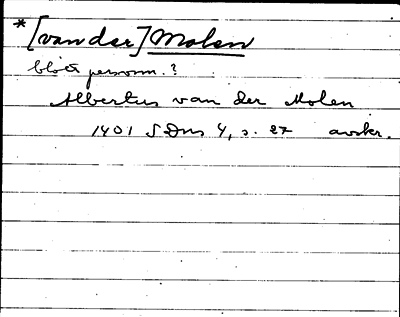 * [van der] Molen
blott personn.?
Albertus van der Molen
1401 SDns 4, s. 27 avskr.